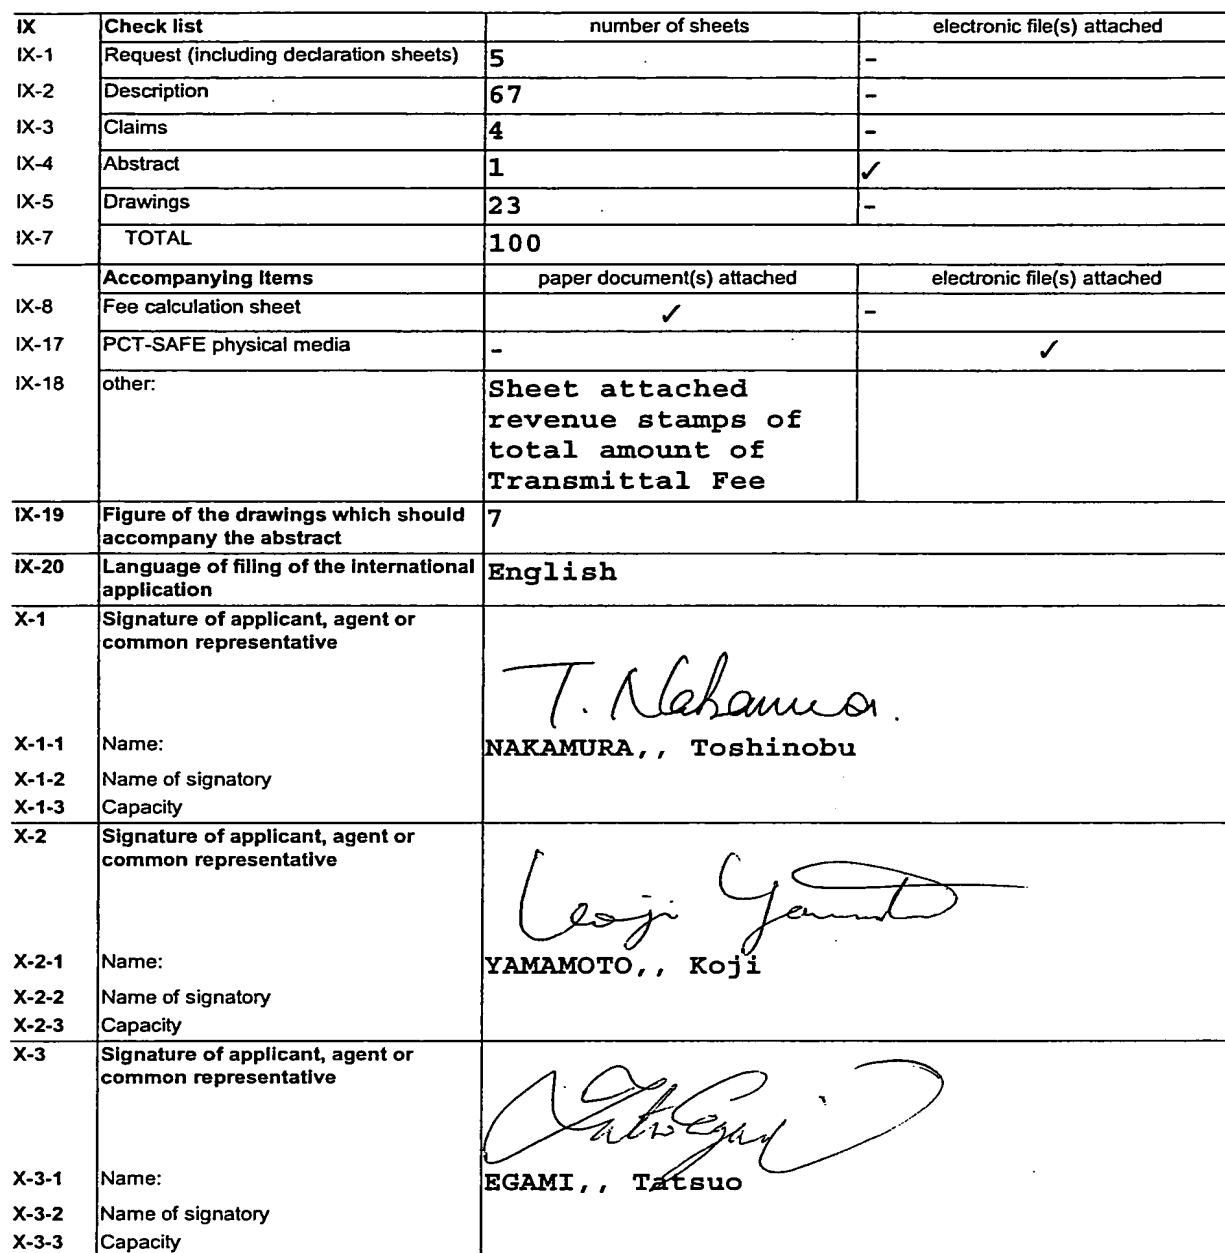 IX Check list number of sheets electronic file(s) attached
IX-1 Request (including declaration sheets) 5 -
IX-2 Description 67 -
IX-3 Claims 4 -
IX-4 Abstract 1 ✓
IX-5 Drawings 23 -
IX-7 TOTAL 100
Accompanying Items paper document(s) attached electronic file(s) attached
IX-8 Fee calculation sheet ✓ -
IX-17 PCT-SAFE physical media - ✓
IX-18 other: Sheet attached
revenue stamps of
total amount of
Transmittal Fee
IX-19 Figure of the drawings which should 7
accompany the abstract
IX-20 Language of filing of the international English
application
X-1 Signature of applicant, agent or
common representative
T. Nakamura.
X-1-1 Name: NAKAMURA,, Toshinobu
X-1-2 Name of signatory
X-1-3 Capacity
X-2 Signature of applicant, agent or
common representative
Koji Yamamoto
X-2-1 Name: YAMAMOTO,, Koji
X-2-2 Name of signatory
X-2-3 Capacity
X-3 Signature of applicant, agent or
common representative
Tatsuo Egami
X-3-1 Name: EGAMI,, Tatsuo
X-3-2 Name of signatory
X-3-3 Capacity